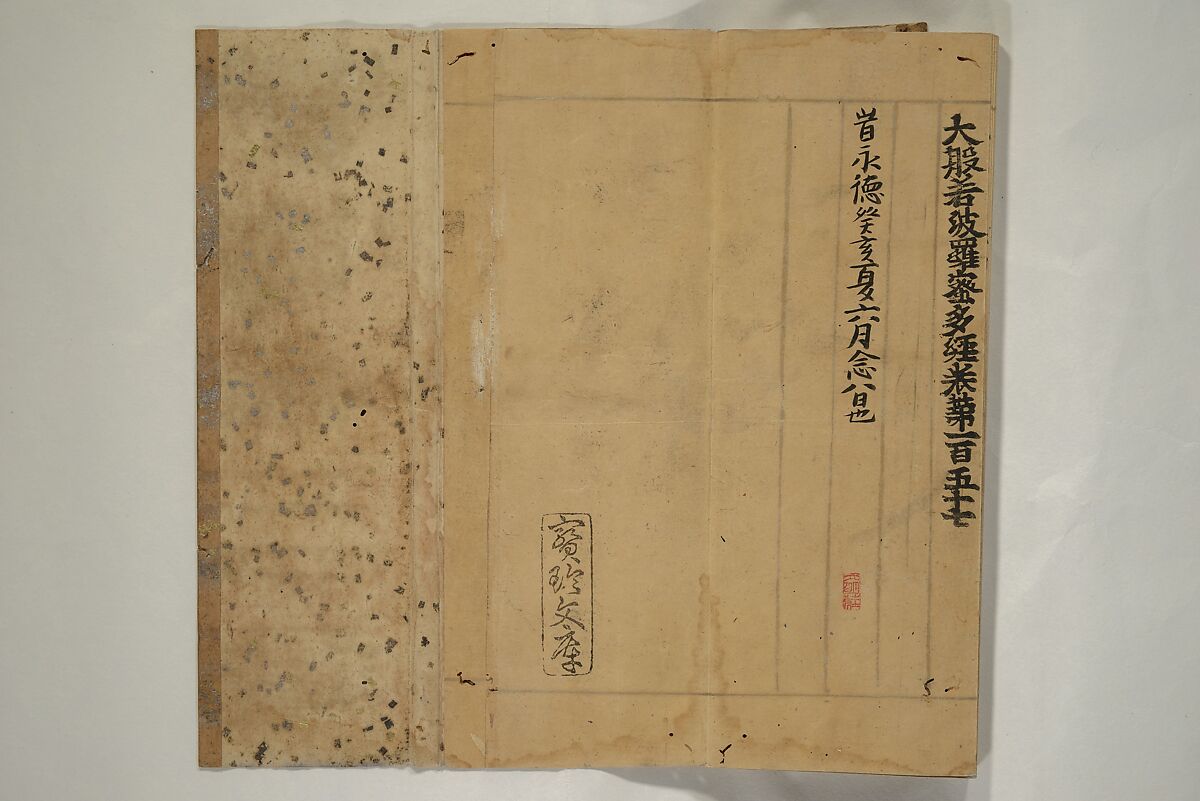 大般若波羅蜜多經卷第一百五十七
昔永徳癸亥夏六月念八日也
寶珍文庫